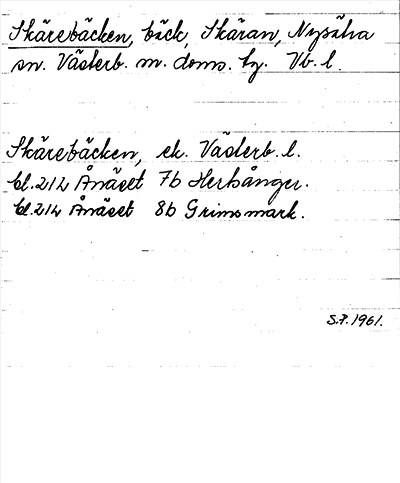 Skärebäcken, bäck, Skäran, Nysätra
sn. Västerb. m. doms. hg. Vb. l.
Skärebäcken, ek. Västerb. l.
bl. 21L Ånäset 7b Herbånger.
bl. 21L Ånäset 8b Grimsmark.
S.P. 1961.